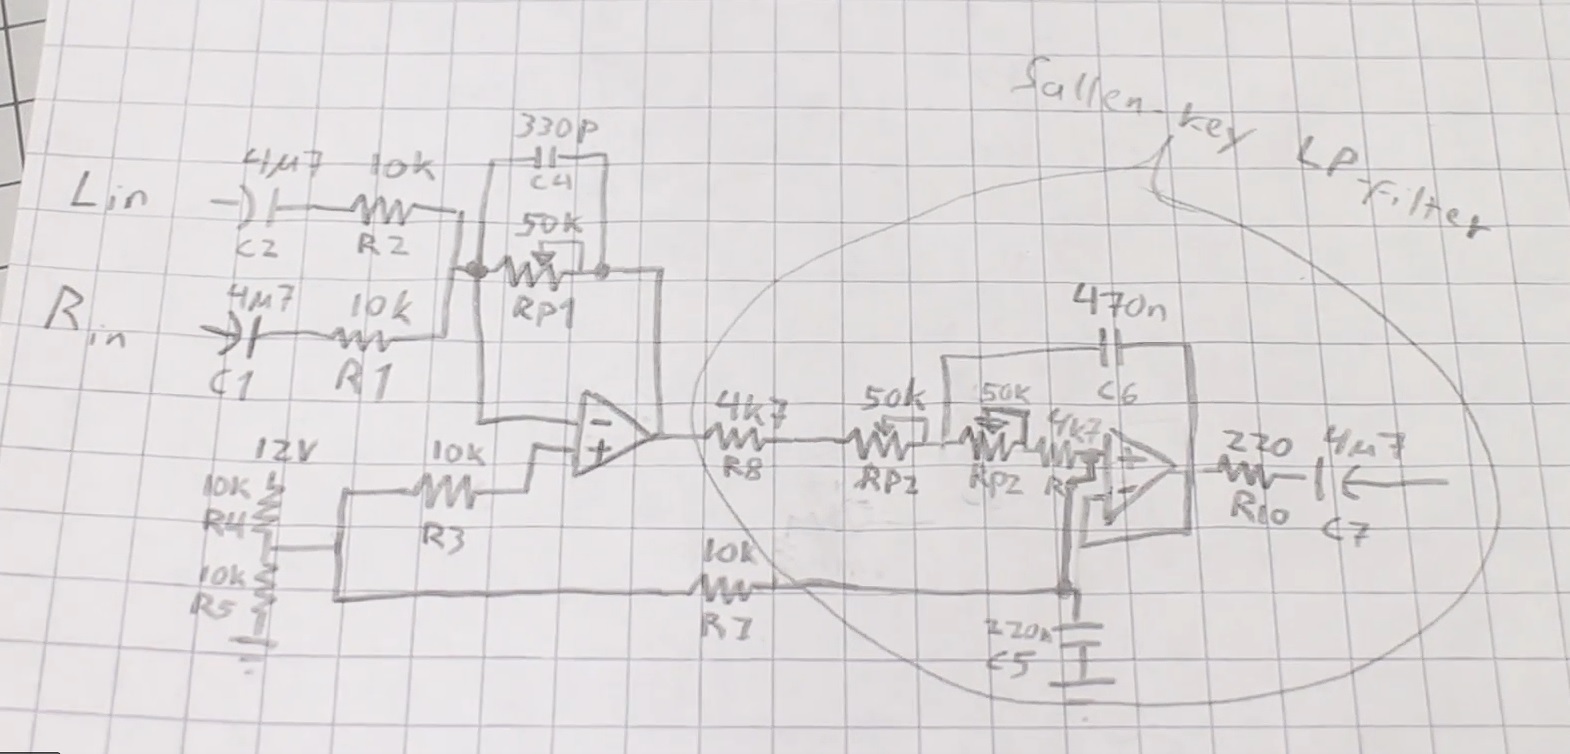 Sallen-key
LP Filter
330p
C4
Lin
4µ7
10k
C2
R2
50k
RP1
Rin
4µ7
10k
C1
R1
470n
C6
4k7
R8
50k
RP2
50k
RP2
4k7
220
R10
4µ7
C7
12V
10k
R4
10k
R5
10k
R3
10k
R7
220n
C5